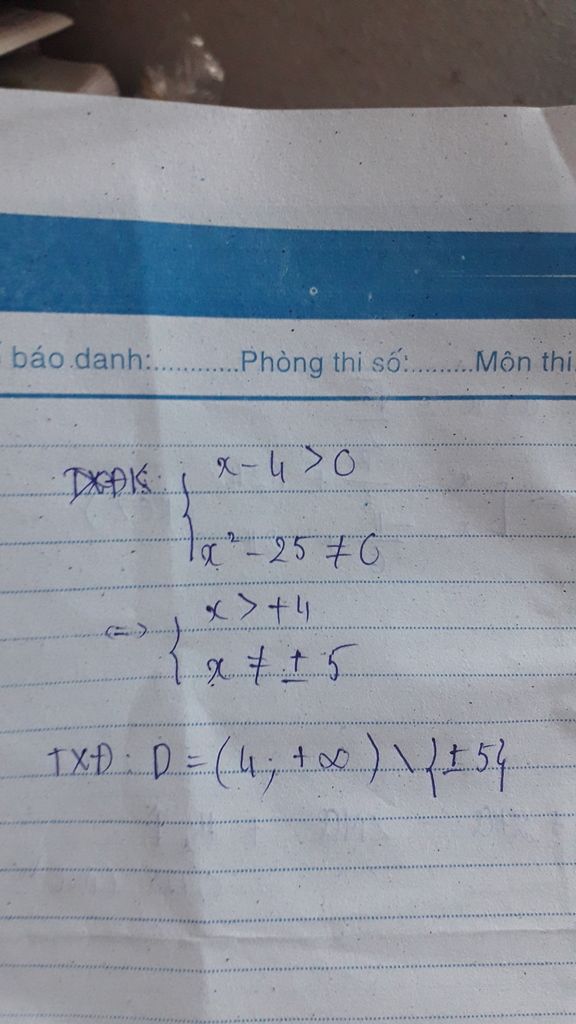 báo danh:............Phòng thi số:.........Môn thi
ĐK: { x - 4 > 0
x² - 25 ≠ 0
<=> { x > +4
x ≠ ± 5
TXĐ: D = (4; +∞) \ {± 5}